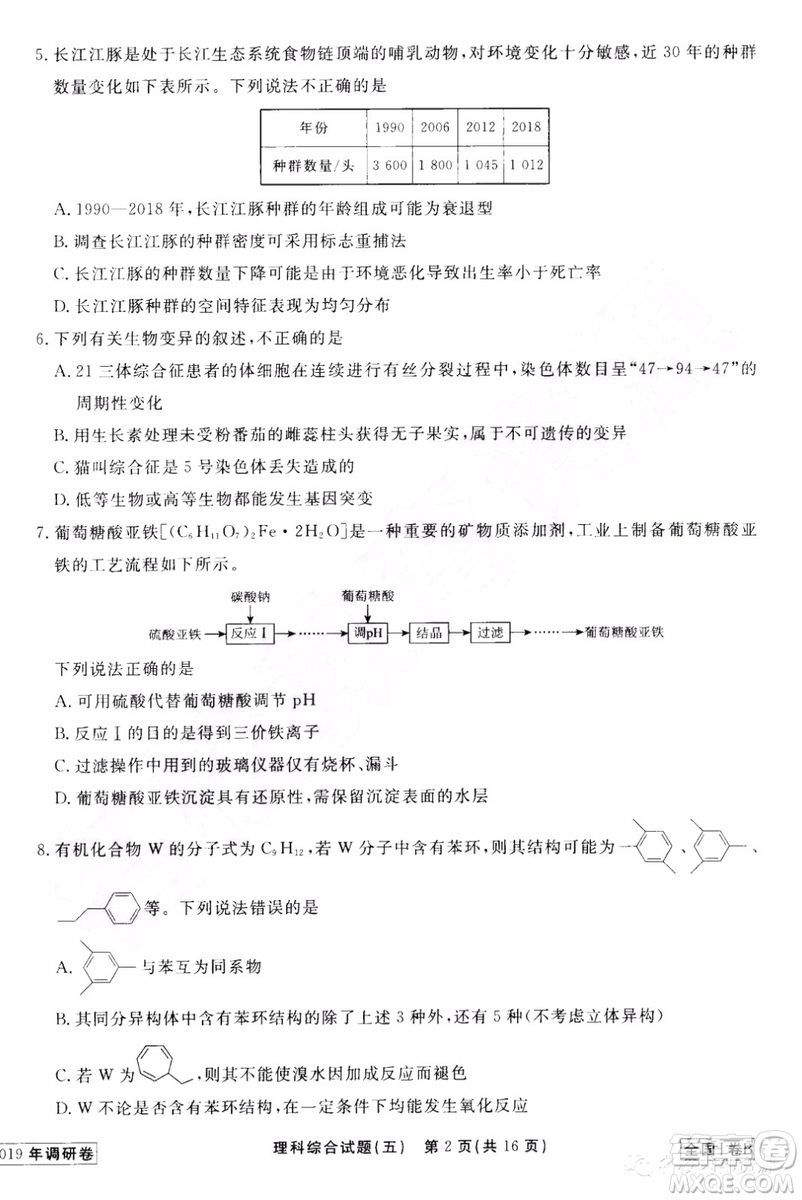 5. 长江江豚是处于长江生态系统食物链顶端的哺乳动物,对环境变化十分敏感,近 30 年的种群
数量变化如下表所示。下列说法不正确的是
年份 1990 2006 2012 2018
种群数量/头 3 600 1 800 1 045 1 012
A. 1990—2018 年,长江江豚种群的年龄组成可能为衰退型
B. 调查长江江豚的种群密度可采用标志重捕法
C. 长江江豚的种群数量下降可能是由于环境恶化出生率小于死亡率
D. 长江江豚种群的空间特征表现为均匀分布
6. 下列有关生物变异的叙述,不正确的是
A. 21 三体综合征患者的体细胞在连续进行的有丝分裂过程中,染色体数目呈“47→94→47”的
周期性变化
B. 用生长素处理未受粉番茄的雌蕊柱头获得无子果实,属于不可遗传的变异
C. 猫叫综合征是 5 号染色体丢失造成的
D. 低等生物或高等生物都能发生基因突变
7. 葡萄糖酸亚铁[(C₆H₁₁O₇)₂Fe·2H₂O]是一种重要的矿物质添加剂,工业上制备葡萄糖酸亚
铁的工艺流程如下所示。
碳酸钠 葡萄糖酸
硫酸亚铁→反应Ⅰ→……→调pH→结晶→过滤→……→葡萄糖酸亚铁
下列说法正确的是
A. 可用硫酸代替葡萄糖酸调节 pH
B. 反应Ⅰ的目的是得到三价铁离子
C. 过滤操作中用到的玻璃仪器仅有烧杯、漏斗
D. 葡萄糖酸亚铁沉淀具有还原性,需保留沉淀表面的水层
8. 有机化合物 W 的分子式为 C₉H₁₂,若 W 分子中含有苯环,则其结构可能为 、 、
等。下列说法错误的是
A. 与苯互为同系物
B. 其同分异构体中含有苯环结构的除了上述 3 种外,还有 5 种(不考虑立体异构)
C. 若 W 为 ,则能使溴水因加成反应而褪色
D. W 不论是否含有苯环,在一定条件下均能发生氧化反应
019 年调研卷 理科综合试题(五) 第 2 页(共 16 页) 全国Ⅰ卷B